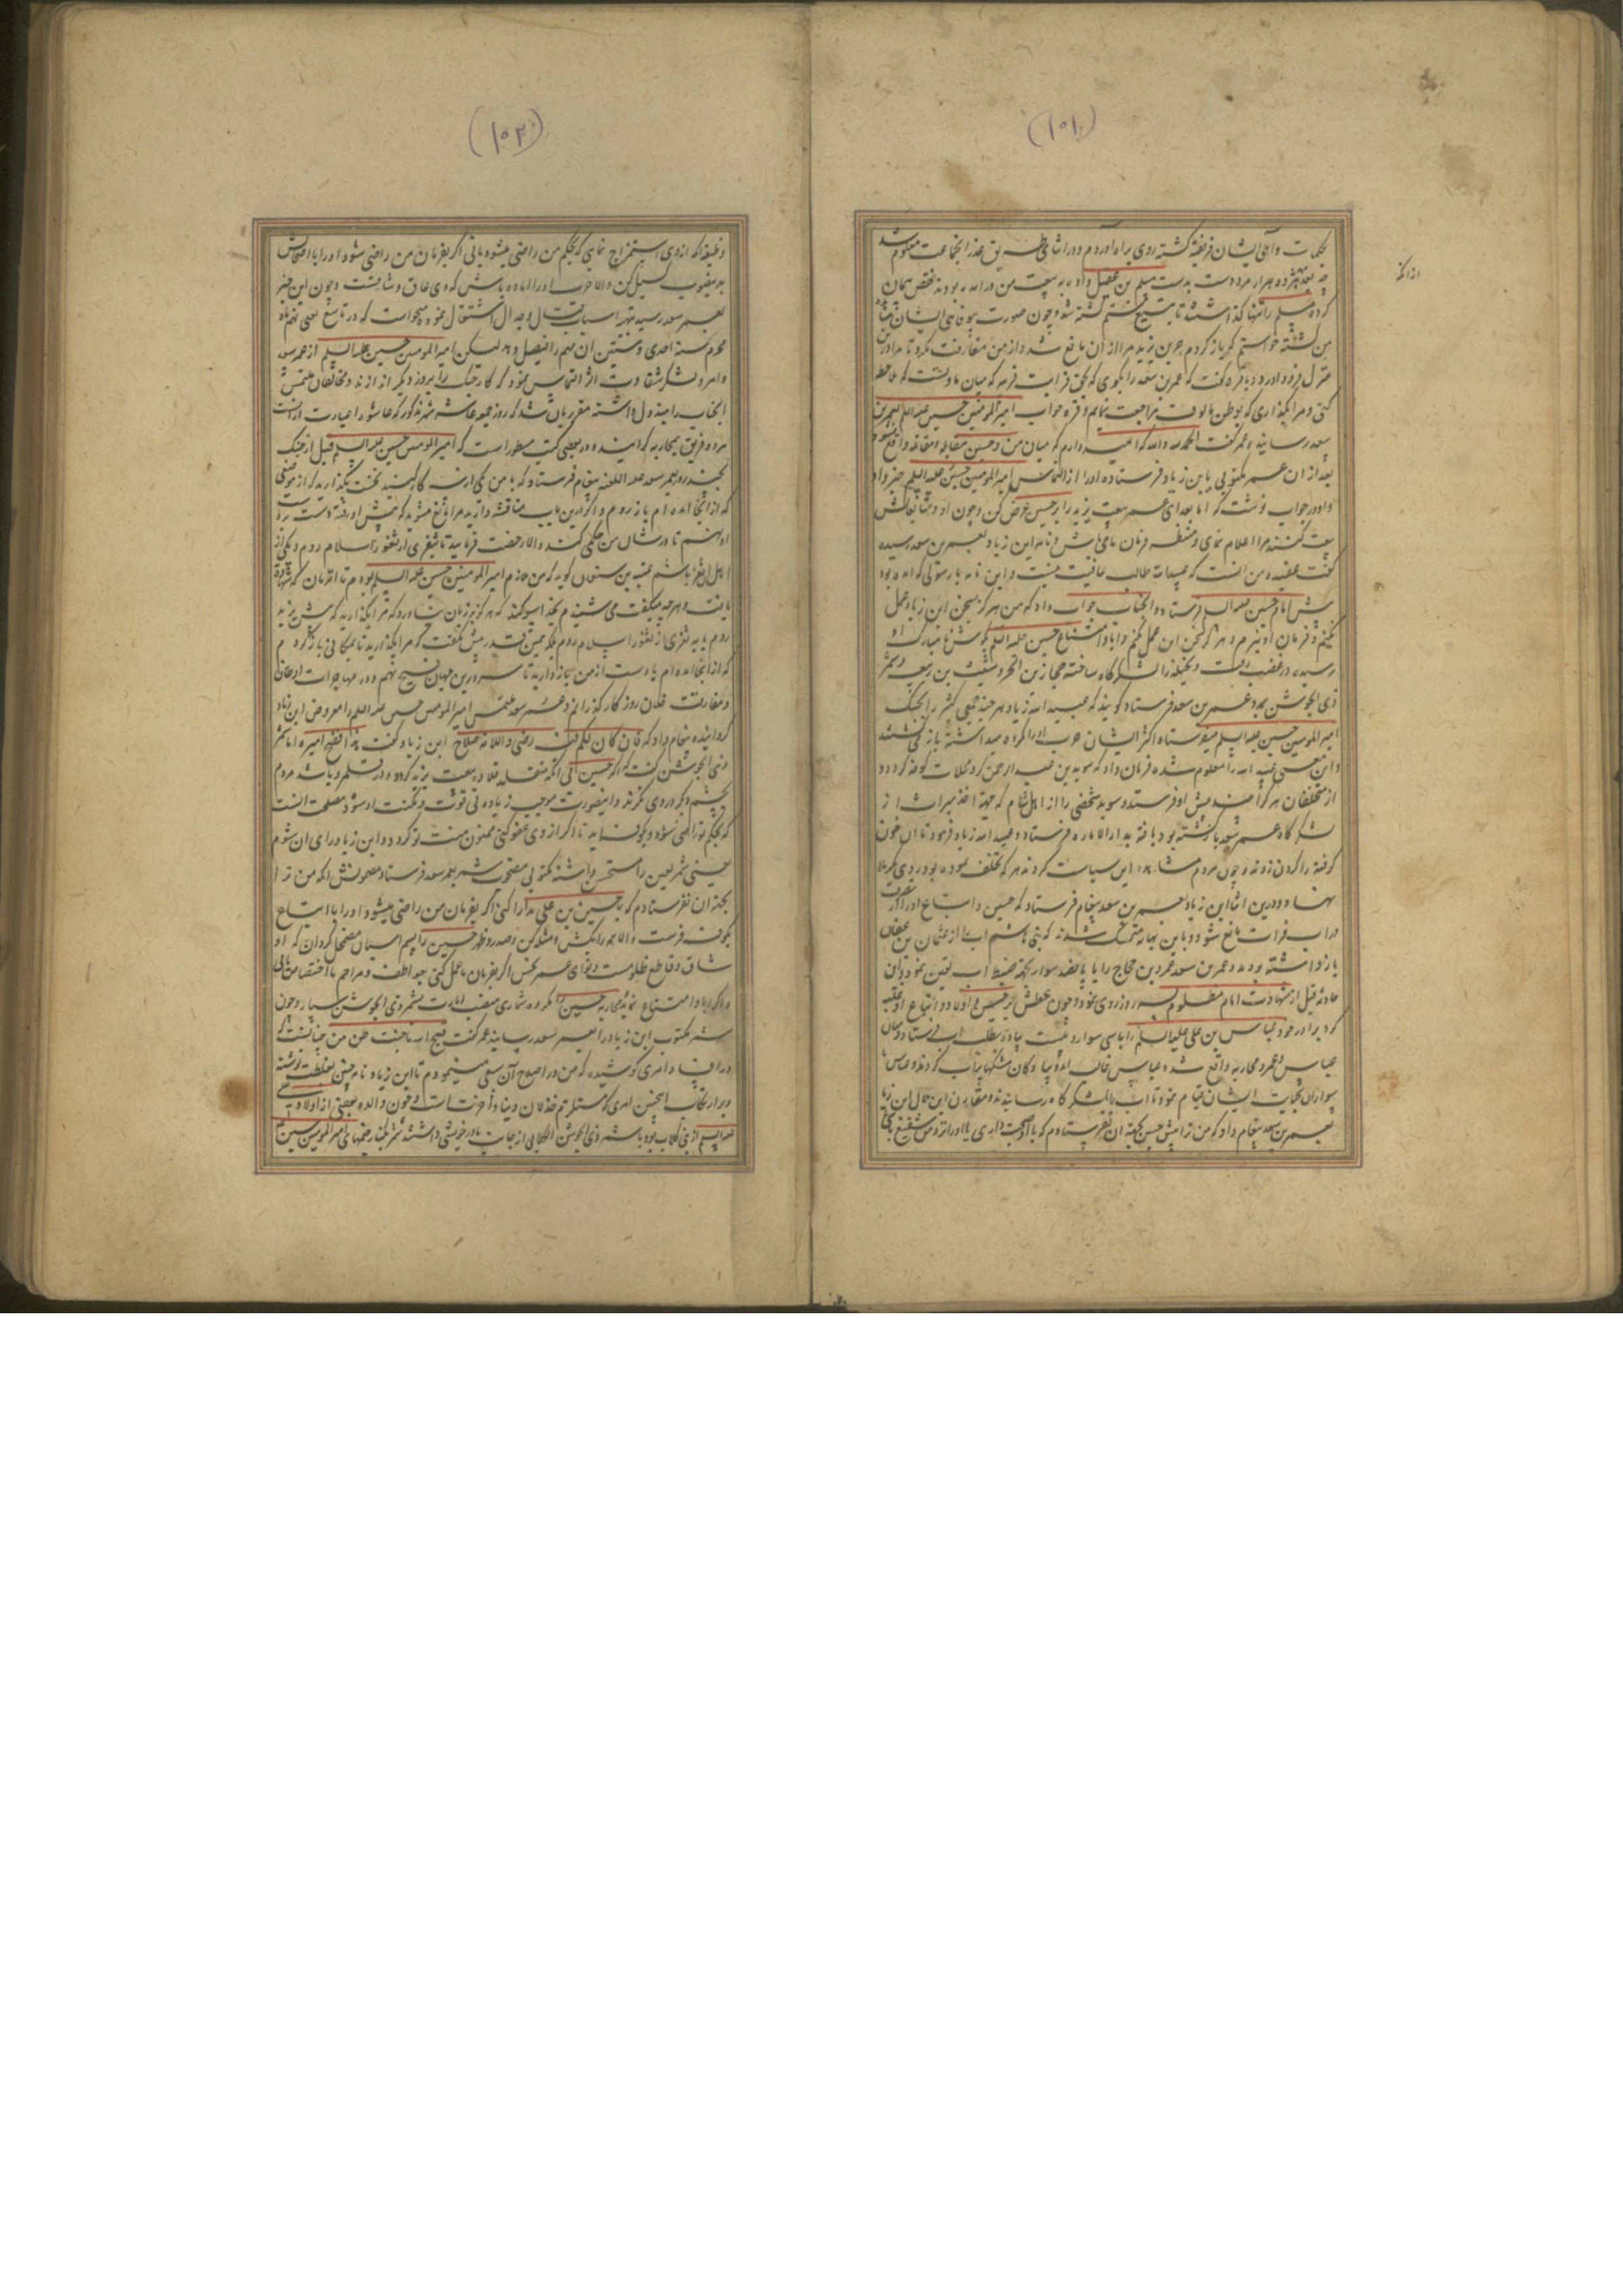 (۱۰۱)
بکلمات واهی ایشان فریفته کشته روی براه آوردم و در اثنای طریق غدر انجماعت معلوم شد
چه بعد هژده هزار مرد دست بدست مسلم بن عقیل داده به بیعت من درامده بودند نقض پیمان
کرده مسلم را تنها کذاشتند تا بتیغ ستم کشته شد و چون صورت بیوفائی ایشان
من کشته خواستم که باز کردم حر بن یزید مرا از آن مانع شد و از من مفارقت نکرد تا مرا درین
منزل فرود آورد و با قره کفت که عمر بن سعد را بکوی که بحق قرابت قریبه که میان ما و تست که
کنی و مرا بکذاری که بوطن مالوف مراجعت نمایم و قره جواب امیرالمومنین حسین علیه السلم بعمر بن
سعد رسانیده عمر کفت الحمد لله والله که امید دارم که میان من و حسین مقابله و مقاتله واقع نشود
بعد از ان عمر مکتوبی بابن زیاد فرستاده او را از التماس امیرالمومنین حسین علیه السلم خبر داد
و او در جواب نوشت که اما بعد ای عمر بیعت یزید را بر حسین عرض کن و چون او و متابعانش
بیعت کنند مرا اعلام نمای و منتظر فرمان ما می باش و نامه ابن زیاد بعمر بن سعد رسیده
کفت عقیده من انست که عبیدالله طالب عافیت نیست و این نامه با رسولی که امده بود
پیش امام حسین علیه السلم فرستاد و انجناب جواب داد که من هرکز بسخن ابن زیاد عمل
نکنم و فرمان او نبرم و چون ابا و امتناع حسین علیه السلم بکوش نامبارک او
رسید در غضب رفت و نخیله را لشکرکاه ساخته حجار بن ابحر و شبث بن ربعی و شمر
ذی الجوشن بمدد عمر بن سعد فرستاد کویند که عبیدالله زیاد هر چند جمعی کثیر را بجنک
امیرالمومنین حسین علیه السلم میفرستاد اکثر ایشان حرب او را مکروه میداشته باز می کشتند
و این معنی عبیدالله را معلوم شده فرمان داد که سوید بن عبدالرحمن کرد محلات کوفه کردد و
از متخلفان هر کرا بیند پیش او فرستد و سوید شخصی را از اهل شام که جهة اخذ میراث از
لشکرکاه عمر سعد باز کشته بود یافته بدارالاماره فرستاد و عبیدالله زیاد فرمود تا ان خون
کرفته را کردن زدند و چون مردم مشاهده این سیاست کردند هر که تخلف نموده بود روی بکربلا
نهاد و درین اثنا ابن زیاد بعمر بن سعد پیغام فرستاد که حسین و اتباع او را از
اب فرات مانع شود و باین بهانه متمسک شدند که بنی هاشم اب را از عثمان بن عفان
باز داشته بودند و عمر بن سعد عمرو بن حجاج را با پانصد سوار بجهة ضبط اب تعیین نمود و این
حادثه قبل از شهادت امام مظلوم بسه روز روی نمود و چون عطش بر حسین و اولاد و اتباع او غلبه
کرد برادر خود عباس بن علی علیه السلم را با سی سوار و بیست پیاده بطلب اب فرستاد و میان
عباس و عمرو محاربه واقع شده عباس غالب آمد و پیادکان مشکها پراب کردند و عباس با
سواران بحمایت ایشان قیام نمود تا اب را بلشکرکاه رسانیدند و مقارن این حال ابن زیاد
بعمر بن سعد پیغام داد که من ترا پیش حسین بجهة ان نفرستادم که با او صحبت داری یا او را نزد من شفیع باشی
(۱۰۲)
وظیفه انکه از وی استمزاج نمایی که بحکم من راضی میشود یا نی اکر بفرمان من راضی شود او را با اصحابش
بدینصوب کسیل کن والا حرب او را اماده باش که وی عاق و شاقست و چون این خبر
بعمر سعد رسید بتهیه اسباب قتال و جدال اشتغال نمود و میخواست که در تاسع یعنی نهم ماه
محرم سنه احدی و ستین ان مهم را فیصل دهد لیکن امیرالمومنین حسین علیه السلم از عمر سعد
و امرء لشکر شقاوت اثر التماس نمود که کار جنک را بروز دیکر اندازند و مخالفان ملتمس
انجناب را مبذول داشته مقرر بران شد که روز جمعه عاشر شهر مذکور که عاشورا عبارت از انست
هر دو فریق بمحاربه کرایند و در بعضی کتب مسطور است که امیرالمومنین حسین علیه السلم قبل از جنک
بچند روز بعمر سعد علیه اللعنه پیغام فرستاد که با من یکی از سه کار کنید نخست بکذارید که از موضعی
که از انجا امده ام باز روم و اکر درین باب مناقشه دارید مرا مانع مشوید که پیش او رفته دست بر
او نهم تا در شان من حکمی کند والا رخصت فرمایید تا بثغری از ثغور اسلام روم و یکی از
اهل ان ثغر باشم عقبه بن سمعان کوید که من ملازم امیرالمومنین حسین علیه السلم بودم تا انزمان که شهادة
یافت و هر چه میکفت می شنیدم بخدا سوکند که هرکز بر زبان نیاورد که مرا بکذارید که پیش یزید
روم یا به ثغری از ثغور اسلام روم بلکه همین قدر بیش نکفت که مرا بکذارید تا بمکانی باز کردم
که از انجا امده ام یا دست از من باز دارید تا سر درین جهان فسیح نهم و در مهاجرت اوطان
و مفارقت خلان روزکار کذرانم و عمر سعد ملتمس امیرالمومنین حسین علیه السلم را معروض ابن زیاد
کردانیده پیغام داد که فان کان لکم رضی وللامة صلاح ابن زیاد کفت هذا فصح امیره اما شمر
ذی الجوشن کفت که اکر حسین بی انکه متقلد قلاده بیعت یزید کردد و در قلمرو باشد مردم
بچشم دیکر در وی نکرند و اینصورت موجب زیادتی قوت و مکنت او شود مصلحت انست
که بحکم تو راضی شود و بکوفه اید تا اکر از وی عفو کنی ممنون منت تو کردد و ابن زیاد رای ان شوم
یعنی شمر لعین را مستحسن داشته مکتوبی مصحوب شمر بعمر سعد فرستاد مضمونش انکه من ترا
بجهة ان نفرستادم که با حسین بن علی مدارا کنی اکر بفرمان من راضی میشود او را با اتباع
بکوفه فرست والا همه را بکش و مثله کن و صدر و ظهر حسین را بسم اسبان مضمحل کردان که او
شاق و قاطع ظلومست و تو ای عمر نحس اکر بفرمان ما عمل کنی بعواطف و مراحم ما اختصاص یابی
و اکر ابا و امتناع نمایی و محاربه حسین را مکروه شماری منصب امارت بشمر ذی الجوشن سپار و چون
شمر مکتوب ابن زیاد را بعمر سعد رسانید عمر کفت قبح الله ما جئت ظن من چنانست که
در افساد امری کوشیده که من در اصلاح آن سعی مینمودم تا ابن زیاد نامه چنین بغلظت نوشته
و بر ارتکاب امری که مستلزم خذلان دنیا و آخرتست و چون والده بعضی از اولاد علی
علیه السلم از بنی کلاب بود با شمر ذی الجوشن الکلابی از جانب مادر خویشی داشتند شمر بکنار خیمهای امیرالمومنین حسین